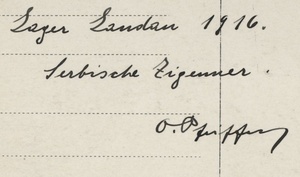 Lager Landau 1916.
Serbische Zigeuner.
O. Pfeiffer